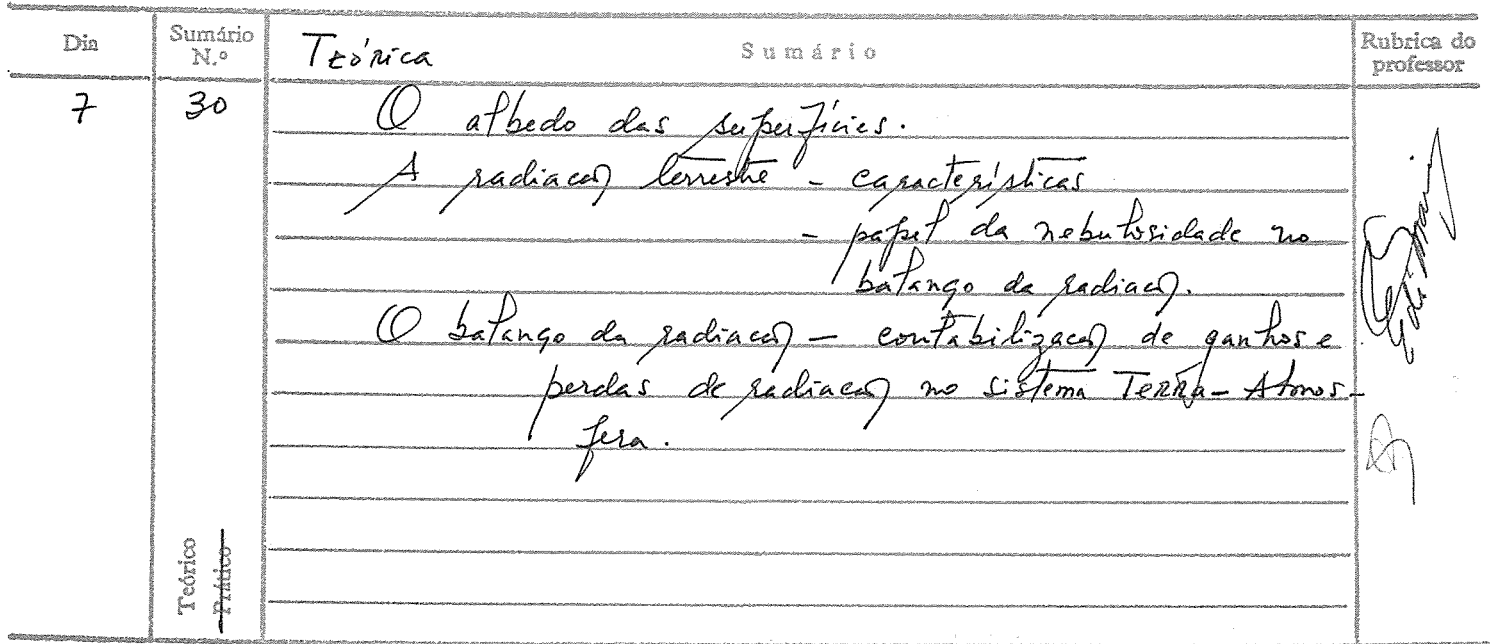 Dia
Sumário N.º
Teórica
Sumário
Rubrica do professor
7
30
O albedo das superfícies.
A radiação terrestre - características
- papel da nebulosidade no
balanço da radiação.
O balanço da radiação - contabilização de ganhos e
perdas de radiação no sistema Terra-Atmos-
fera.
Teórico
Prático